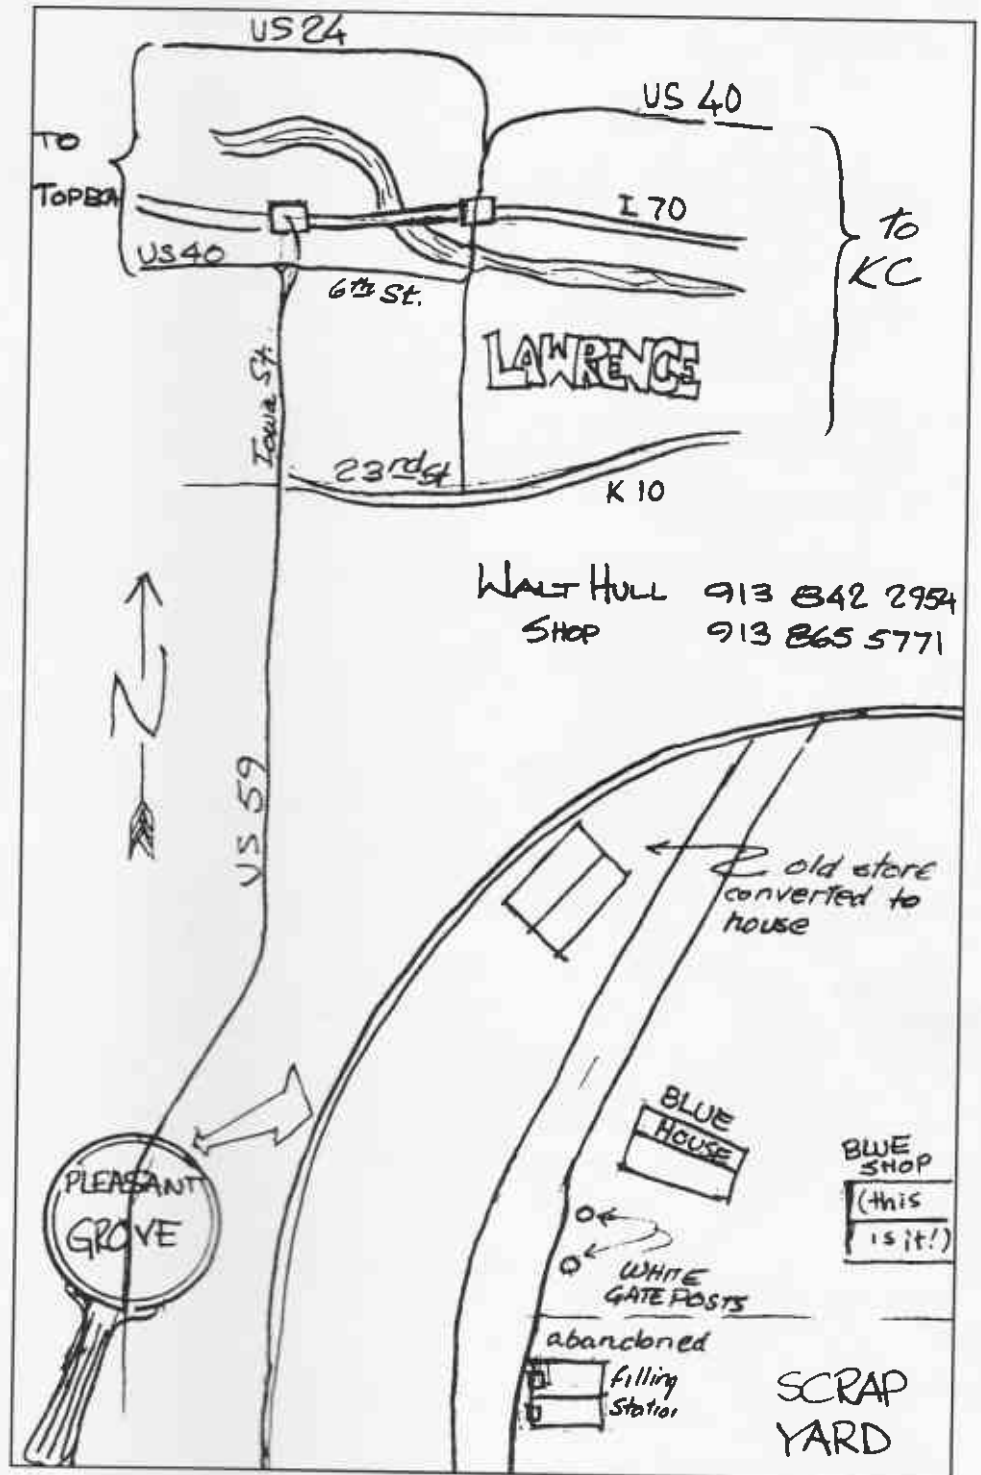 US 24
US 40
TO
TOPEKA
I 70
to
KC
US 40
6th St.
LAWRENCE
Iowa St.
23rd St
K 10
WALT HULL 913 842 2954
SHOP 913 865 5771
N
US 59
old store
converted to
house
BLUE
HOUSE
BLUE
SHOP
(this
is it!)
PLEASANT
GROVE
WHITE
GATE POSTS
abandoned
filling
station
SCRAP
YARD